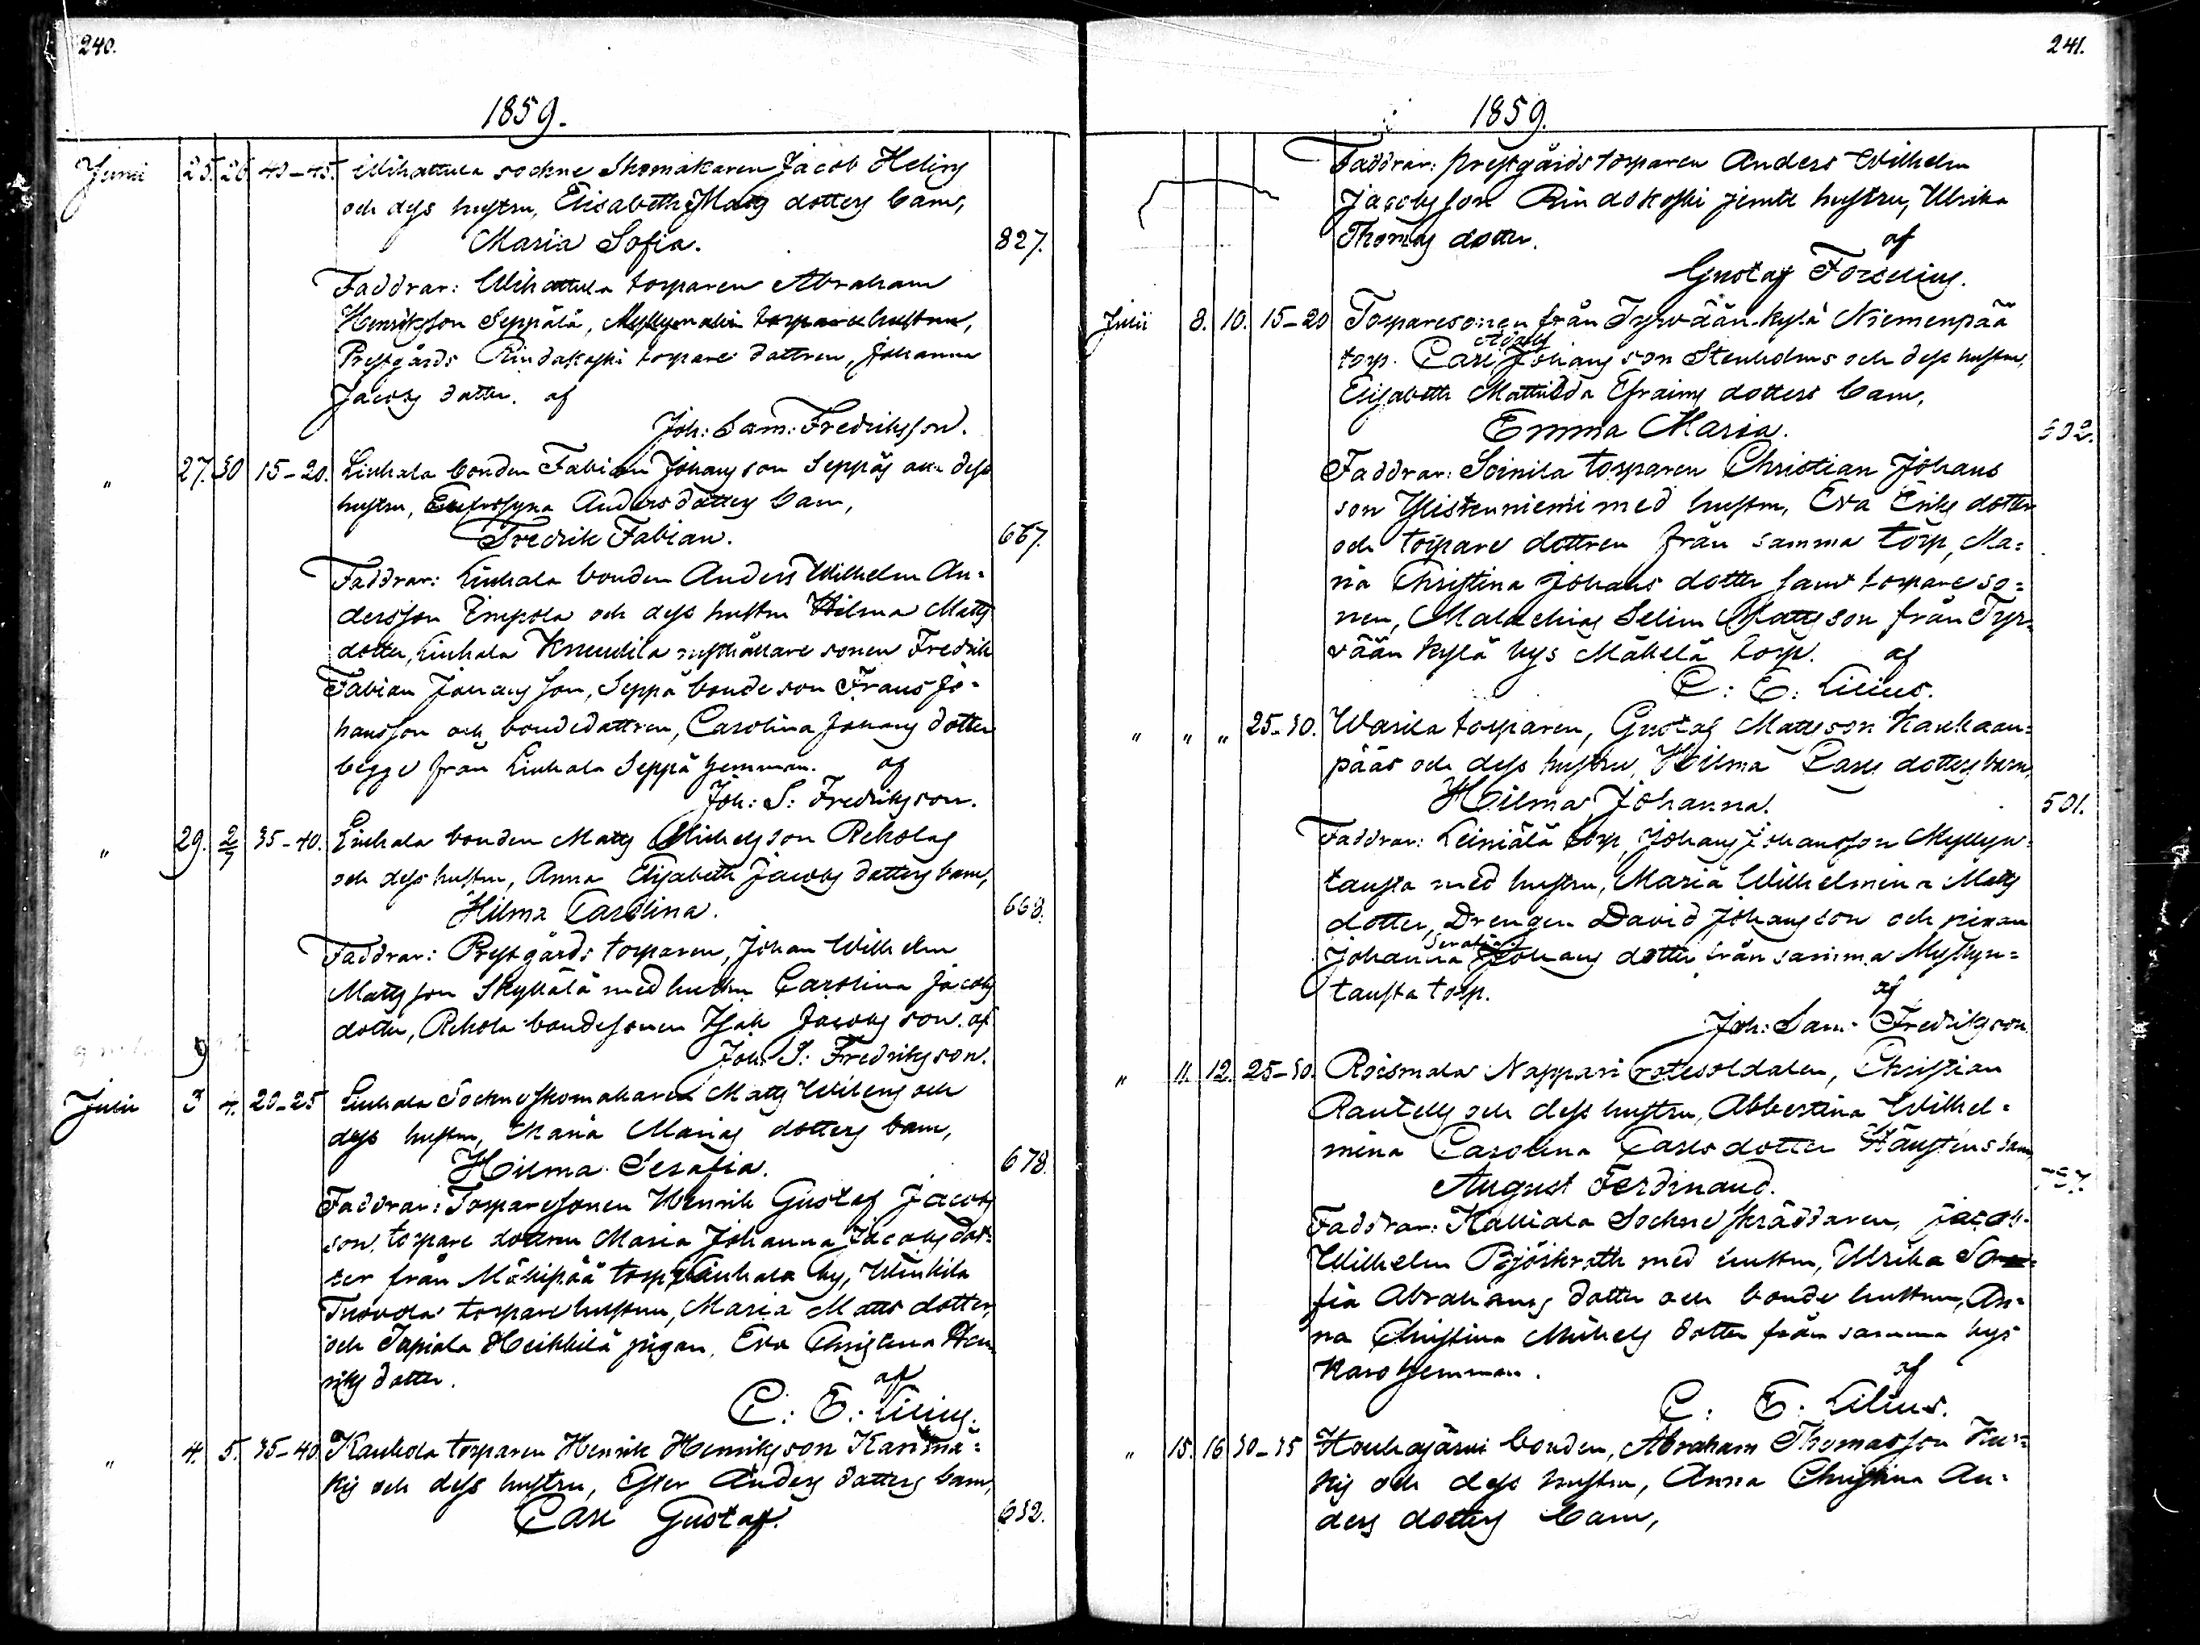 240.
1859.
Junii 25. 26. 40-45. sockne Skomakaren Jacob Helins
och dess hustru, Elisabeth Matts dotters barn,
Maria Sofia. 827.
Faddrar: torparen Abraham
Henriksson Seppälä, torpare hustrun,
Prestgårds Rindakoski torpare dottren, Johanna
Jacobs dotter. af
Joh: Sam: Fredriksson.
" 27. 30 15-20. Liuhala bonden Fabian Johansson Seppäs och dess
hustru, Eufrosyna Anders dotters barn,
Fredrik Fabian. 667.
Faddrar: Liuhala bonden Anders Wilhelm An-
dersson Simpola och dess hustru Wilma Matts
dotter, Liuhala Knuutila rusthållare sonen Fredrik
Fabian Johansson, Seppä bondeson Frans Jo-
hansson och bondedottren, Carolina Johans dotter
begge från Liuhala Seppä hemman. af
Joh: S: Fredriksson.
" 29. 2/7 35-40. Liuhala bonden Matts Michelsson Reholas
och dess hustru, Anna Elisabeth Jacobs dotters barn,
Hilma Carolina. 668.
Faddrar: Prestgårds torparen, Johan Wilhelm
Mattsson Skyttälä med hustru Carolina Jacobs
dotter, Rehola bondesonen Isak Jacobsson. af
Joh: S: Fredriksson.
Julii 3 4. 20-25 Liuhala Sockneskomakaren Matts Wilens och
dess hustru, Maria Marias dotters barn,
Hilma Serafia. 678.
Faddrar: Torparesonen Henrik Gustaf Jacobs
son, torpare dottren Maria Johanna Jacobs dot-
ter från Mäkipää torp, Liuhala by,
Tuovola torpare hustrun, Maria Matts dotter,
och Tapiala Heikkilä pigan, Eva Christina Hen-
riks dotter. af
C: E: Lilius.
" 4. 5. 35-40. Kaukola torparen Henrik Henriksson Karimä-
kis och dess hustru, Ester Anders dotters barn,
Carl Gustaf. 652.
241.
1859.
Faddrar: prestgårds torparen Anders Wilhelm
Jacobsson Rindokoski jemte hustru, Ulrika
Thomas dotter. af
Gustaf Forselius.
Julii 8. 10. 15-20 Torparesonen från Tyrvään kylä Niemenpää
Adolf
torp. Carl Johansson Stenholms och dess hustru,
Elisabeth Mathilda Efraims dotters barn,
Emma Maria. 502.
Faddrar: Soinila torparen Christian Johans
son Ylistenniemi med hustru, Eva Eriks dotter
och torpare dottren från samma torp, Ma-
ria Christina Johans dotter samt torpare so-
nen, Malachias Selim Mattsson från Tyr-
vään kylä bys Mäkelä torp. af
C: E: Lilius.
" " " 25-30. Warila torparen, Gustaf Mattsson Kauhaan-
pääs och dess hustru, Hilma Carls dotters barn,
Hilma Johanna. 501.
Faddrar: Leiniälä torp, Johans Johansson Myllyn-
tausta med hustru, Maria Wilhelmina Matts
dotter, Drengen David Johansson och pigan
Serafia
Johanna Johans dotter från samma Myllyn-
tausta torp. af
Joh: Sam: Fredriksson
" 11. 12. 25-30. Roismala Nappari rotesoldaten, Christian
Rautells och dess hustru, Albertina Wilhel-
mina Carolina Carls dotter barn
August Ferdinand.
Faddrar: Kalliala Sockneskräddaren, Jacob
Wilhelm Björkroth med hustru, Ulrika So-
fia Abrahams dotter och bonde hustrun, An-
na Christina Michels dotter från samma bys
Karo hemman. af
C: E: Lilius.
" 15. 16 30-35 Houhajärvi bonden, Abraham Thomasson Kur-
kis och dess hustru, Anna Christina An-
ders dotters barn,